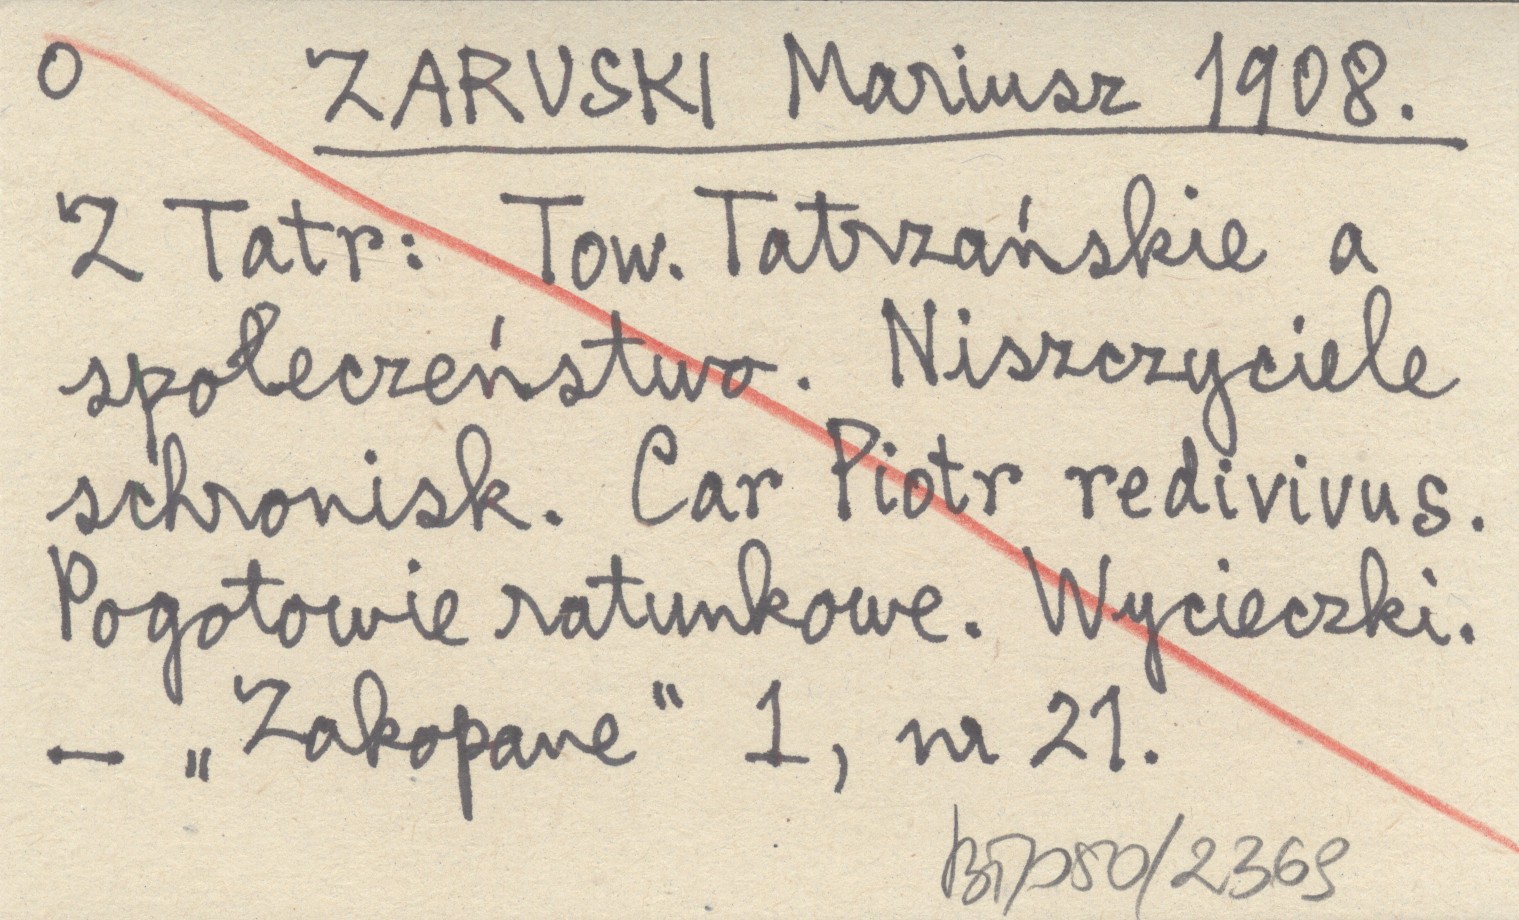 O ZARUSKI Mariusz 1908.
Z Tatr: Tow. Tatrzańskie a
społeczeństwo. Niszczyciele
schronisk. Car Piotr redivivus.
Pogotowie ratunkowe. Wycieczki.
— „Zakopane" 1, nr 21.
/2369